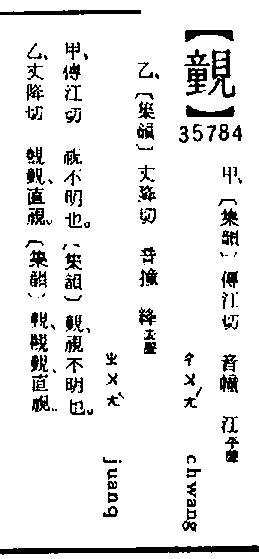 【䚒】
35784
甲、〔集韻〕傳江切 音幢 江平聲
ㄔㄨㄤˊ chwang
乙、〔集韻〕丈降切 音撞 絳去聲
ㄓㄨㄤˋ juang
甲、傳江切 視不明也。〔集韻〕䚒、視不明也。
乙、丈降切 䚒䚒、直視。〔集韻〕䚒、䚒䚒、直視。